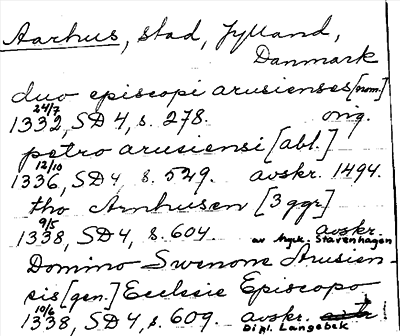 Aarhus, stad, Jylland,
Danmark
duo episcopi arusienses [nom.]
24/7
1332, SD 4, s. 278. orig.
petro arusiensi [abl.]
12/10
1336, SD 4 s. 529. avskr. 1494.
tho Arnhusen [3 ggr]
9/5
1338, SD 4, s. 604 avskr.
av hgsk. Stavenhagen
Domino Swenone Arusien-
sis [gen.] Ecclesie Episcopo
10/6
1338, SD 4, s. 609. avskr. !
Dipl. Langebek